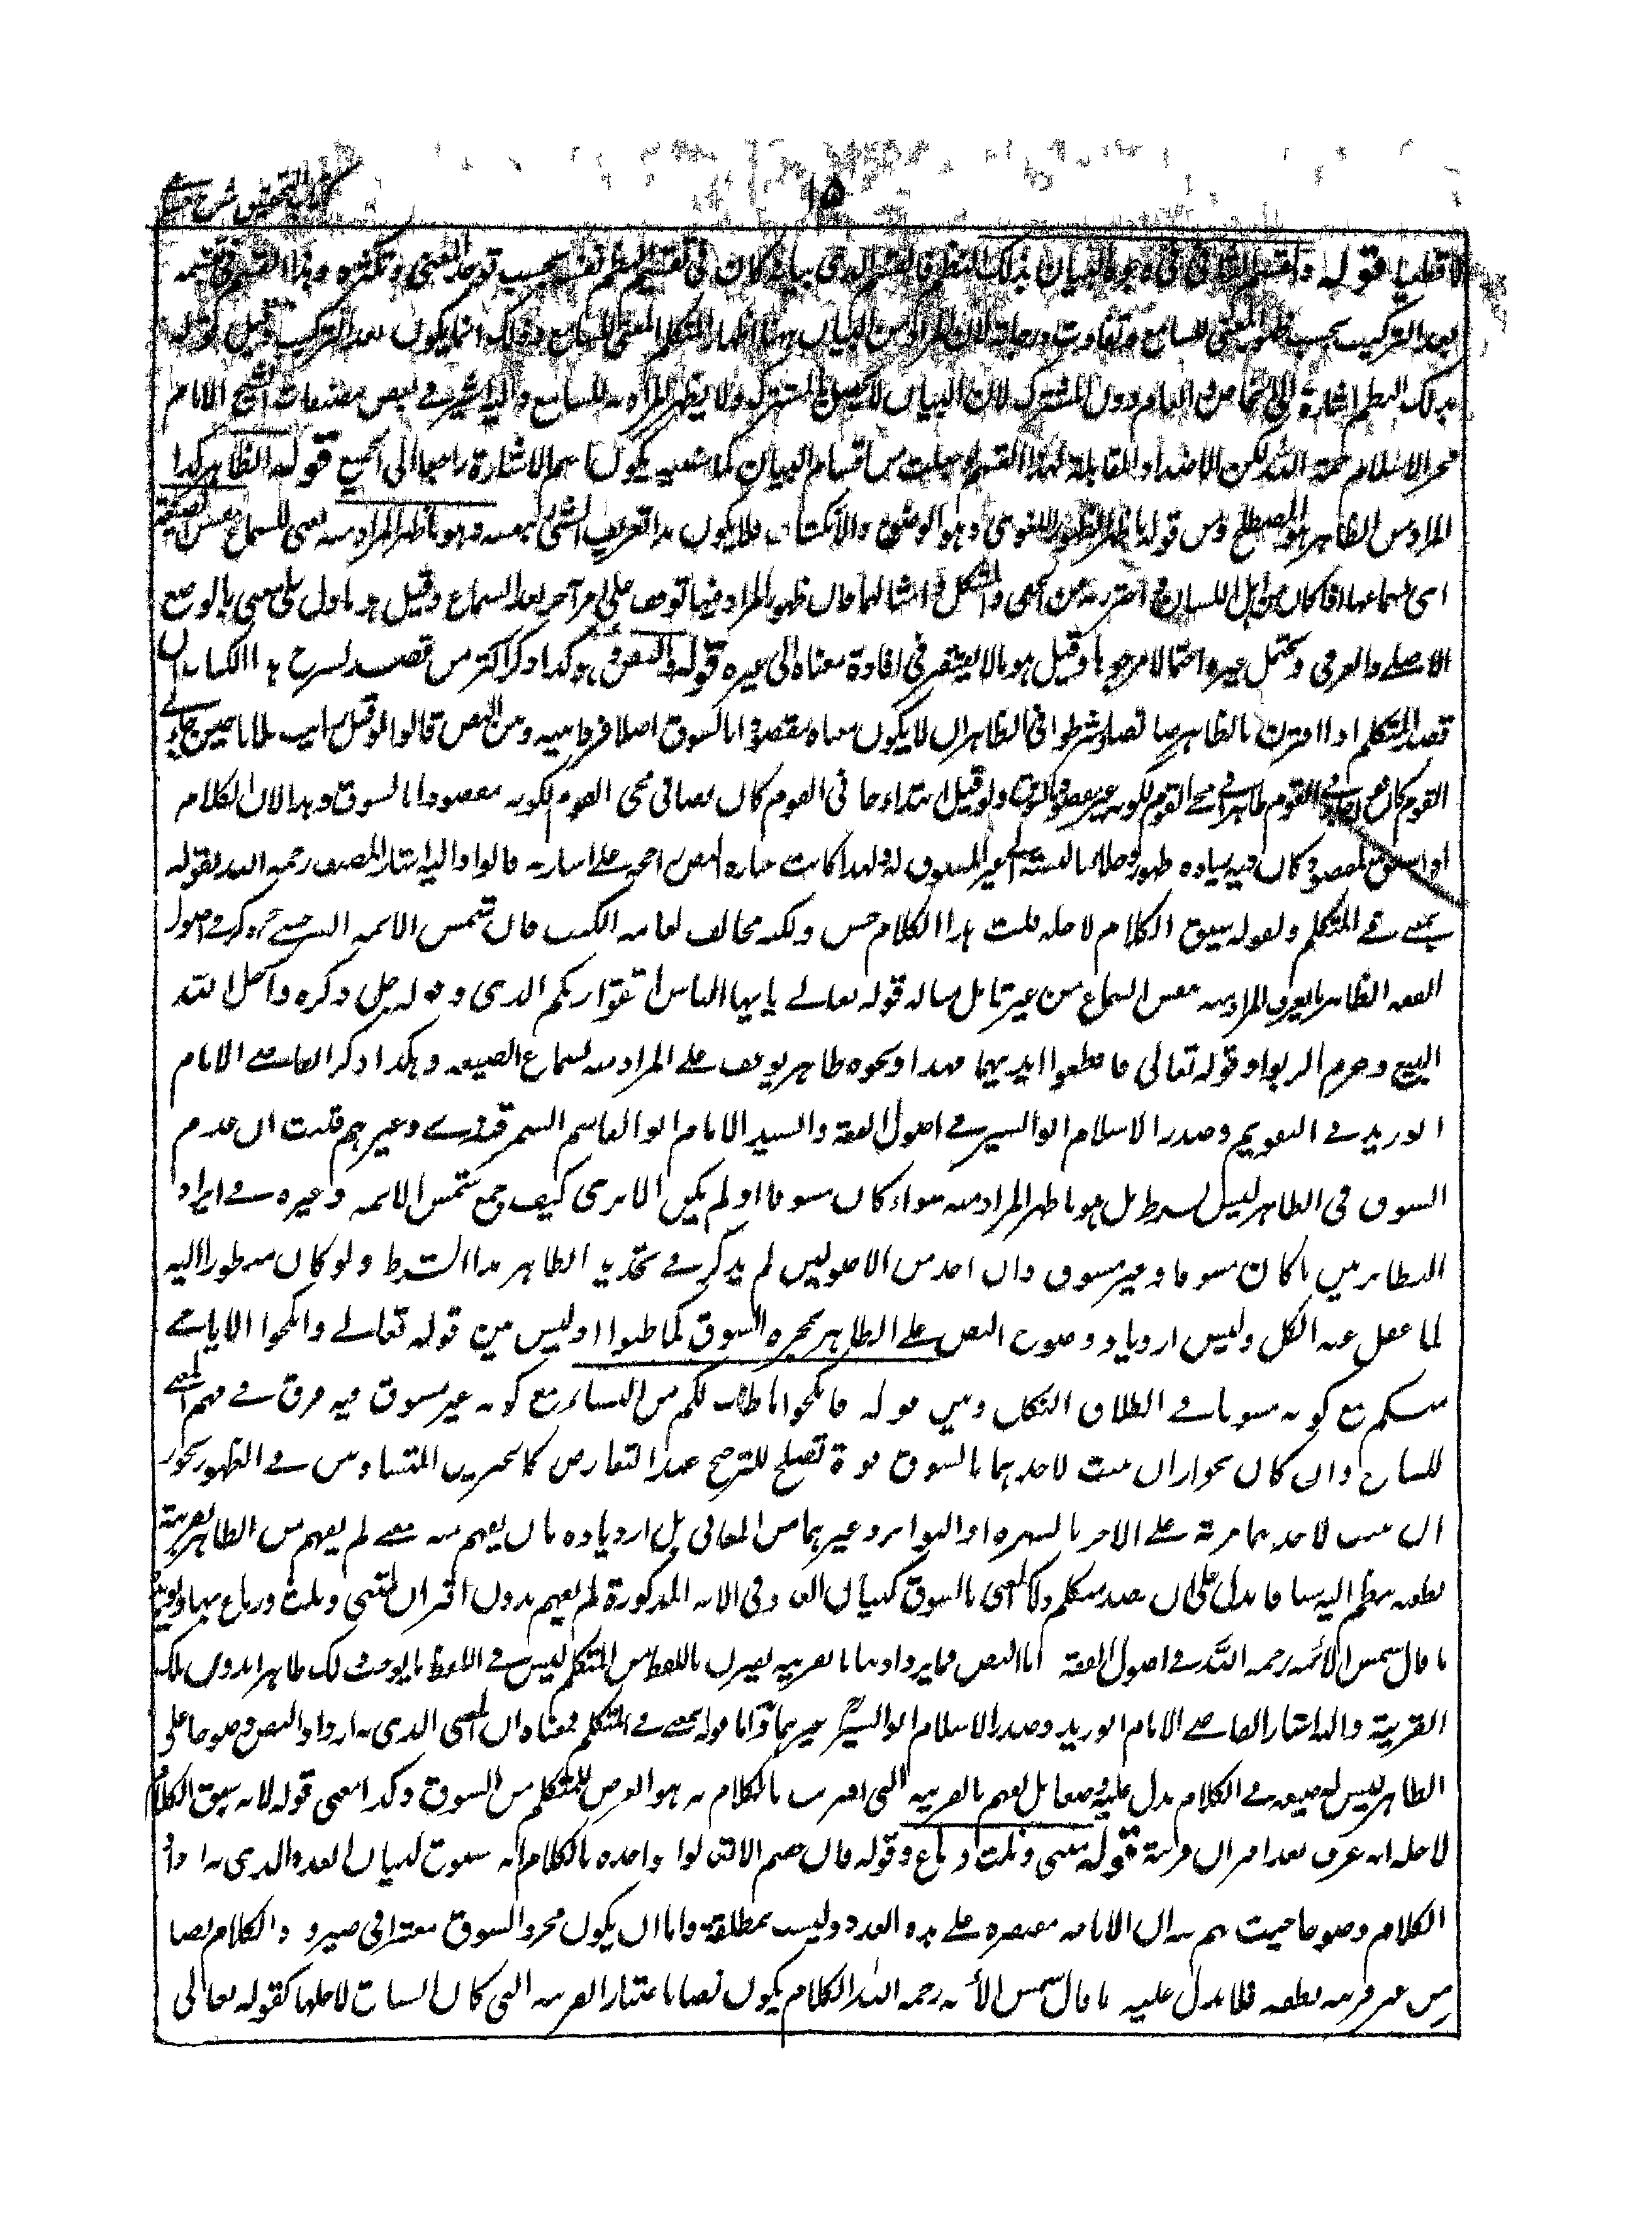 كتاب التحقيق شرح حسامي
١٥
لا قطعيا قوله والقسم الثاني في وجوه البيان بذلك النظم فالقسم الذي بيانه كان في تقسيم النظم نفسه بحسب توحد المعنى وتكثره وهذا القسم في تقسيمه
بعد التركيب بحسب ظهور المعنى للسامع وتفاوت درجاته لان المراد من البيان ههنا اظهار المتكلم المعنى للسامع وذلك انما يكون بعد التركيب وقيل قوله
بذلك النظم اشارة الى الخاص والعام دون المشترك لان البيان لا يحصل بالمشترك ولا يظهر المراد به للسامع واليه اشير في بعض مصنفات الشيخ الامام
فخر الاسلام رحمة الله لكن الاضداد المقابلة لهذا القسم جعلت من اقسام البيان يكون اسم الاشارة راجعا الى الجميع قوله الظاهر كذا
المراد من الظاهر هو المصطلح ومن قوله ما ظهر الظهور اللغوي وهو الوضوح والانكشاف فلا يكون هذا تعريف الشئ بنفسه وهو ما ظهر المراد منه يعني للسامع بنفس الصيغة
اي بسماعها اذا كان من اهل اللسان احترز به عن الخفي والمشكل وامثالهما فان ظهور المراد فيها توقف على امر آخر بعد السماع وقيل هو ما دل على معنى بالوضع
الاصلي والعرفي ويحتمل غيره احتمالا مرجوحا وقيل هو ما لا يفتقر في افادة معناه الى غيره قوله والنص كذا ذكر اكثر من قصد لشرح هذا الكتاب ان
قصد المتكلم اذا اقترن بالظاهر صار نصا وشرطوا في الظاهر ان لا يكون معناه مقصودا بالسوق اصلا فرقا بينه وبين النص قالوا لو قيل رأيت فلانا حين جاءني
القوم كان قوله جاءني القوم ظاهرا في مجئ القوم لكونه غير مقصود بالسوق ولو قيل ابتداء جاءني القوم كان نصا في مجئ القوم لكونه مقصودا بالسوق وهذا لان الكلام
اذا سيق لمقصود كان فيه زيادة ظهور وجلاء بالنسبة الى غير المسوق له ولهذا كانت عبارة النص راجحة على اشارته قالوا واليه اشار المصنف رحمه الله بقوله
بمعنى في المتكلم وبقوله سيق الكلام لاجله قلت هذا الكلام حسن ولكنه مخالف لعامة الكتب قال شمس الائمة السرخسي رح ذكر في اصول
الفقه الظاهر ما يعرف المراد منه بنفس السماع من غير تامل مثاله قوله تعالى يا يها الناس اتقوا ربكم الذي وقوله جل ذكره واحل الله
البيع وحرم الربوا وقوله تعالى فاقطعوا ايديهما فهذا ونحوه ظاهر يوقف على المراد منه بسماع الصيغة وهكذا ذكر القاضي الامام
ابو زيد في التقويم وصدر الاسلام ابو اليسر في اصول الفقه والسيد الامام ابو القاسم السمرقندي وغيرهم قلت ان عدم
السوق في الظاهر ليس بشرط بل هو ما ظهر المراد منه سواء كان مسوقا او لم يكن الا ترى كيف جمع شمس الائمة وغيره في ايراد
النظائر بين ما كان مسوقا وغير مسوق وان احد من الاصوليين لم يذكر في تحديد الظاهر هذا الشرط ولو كان منظورا اليه
لما غفل عنه الكل وليس ازدياد وضوح النص على الظاهر بمجرد السوق كما ظنوا اذ ليس بين قوله تعالى وانكحوا الايامى
منكم مع كونه مسوقا في اطلاق النكاح وبين قوله فانكحوا ما طاب لكم من النساء مع كونه غير مسوق فيه فرق في فهم المعنى
للسامع وان كان يجوز ان يثبت لاحدهما بالسوق قوة تصلح للترجيح عند التعارض كالخبرين المتساويين في الظهور يجوز
ان يثبت لاحدهما مزية على الاخر بالشهرة او التواتر وغيرهما من المعاني بل ازدياده بان يفهم منه معنى لم يفهم من الظاهر بقرينة
نطقية ينظم اليه سياقا يدل على ان قصد المتكلم ذلك المعنى بالسوق كبيان العدد في الاية المذكورة لم يفهم بدون اقتران مثنى وثلث ورباع بها ويؤيد
ما قال شمس الائمة رحمه الله في اصول الفقه اما النص فما يزداد بيانا بقرينة يقترن باللفظ من المتكلم ليس في اللفظ ما يوجب ذلك ظاهرا بدون تلك
القرينة واليه اشار القاضي الامام ابو زيد وصدر الاسلام ابو اليسر وغيرهما واما قوله بمعنى في المتكلم فمعناه ان المعنى الذي به ازداد النص وضوحا على
الظاهر ليس له صيغة في الكلام يدل عليه وضعا بل يفهم بالقرينة التي اقترنت بالكلام انه هو الغرض للمتكلم من السوق وكذا معنى قوله لانه سيق الكلام
لاجله انه عرف بعد اقتران قرينة قوله مثنى وثلث ورباع وقوله فان خفتم الا تعدلوا فواحدة بالكلام انه مسوق لبيان العدد الذي به ازداد
الكلام وضوحا حيث فهم به ان الاباحة مقتصرة على هذه العدد وليست بمطلقة واما ان يكون مجرد السوق معتبرا في صيرورة الكلام نصا
من غير قرينة نطقية فلا يدل عليه ما قال شمس الائمة رحمه الله الكلام يكون نصا باعتبار القرينة التي كان السياق لاجلها كقوله تعالى